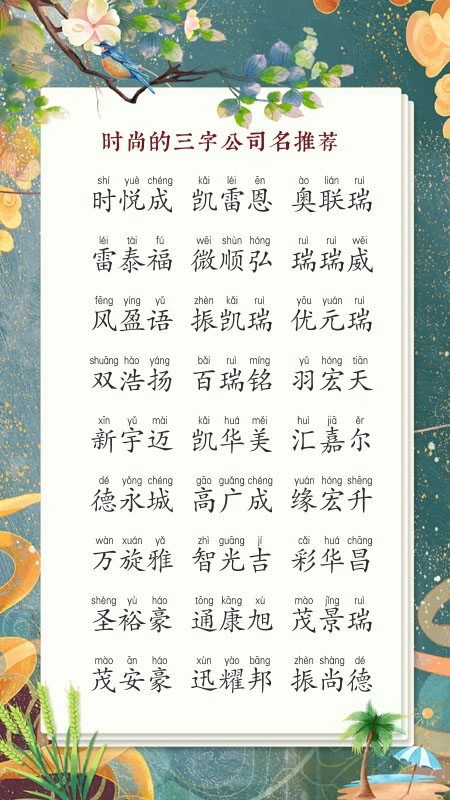 时尚的三字公司名推荐
shí yuè chéng kǎi léi ēn ào lián ruì
时悦成 凯雷恩 奥联瑞
léi tài fú wēi shùn hóng ruì ruì wēi
雷泰福 微顺弘 瑞瑞威
fēng yíng yǔ zhèn kǎi ruì yōu yuán ruì
风盈语 振凯瑞 优元瑞
shuāng hào yáng bǎi ruì míng yǔ hóng tiān
双浩扬 百瑞铭 羽宏天
xīn yǔ mài kǎi huá měi huì jiā ěr
新宇迈 凯华美 汇嘉尔
dé yǒng chéng gāo guǎng chéng yuán hóng shēng
德永城 高广成 缘宏升
wàn xuán yǎ zhì guāng jí cǎi huá chāng
万旋雅 智光吉 彩华昌
shèng yù háo tōng kāng xù mào jǐng ruì
圣裕豪 通康旭 茂景瑞
mào ān háo xùn yào bāng zhèn shàng dé
茂安豪 迅耀邦 振尚德